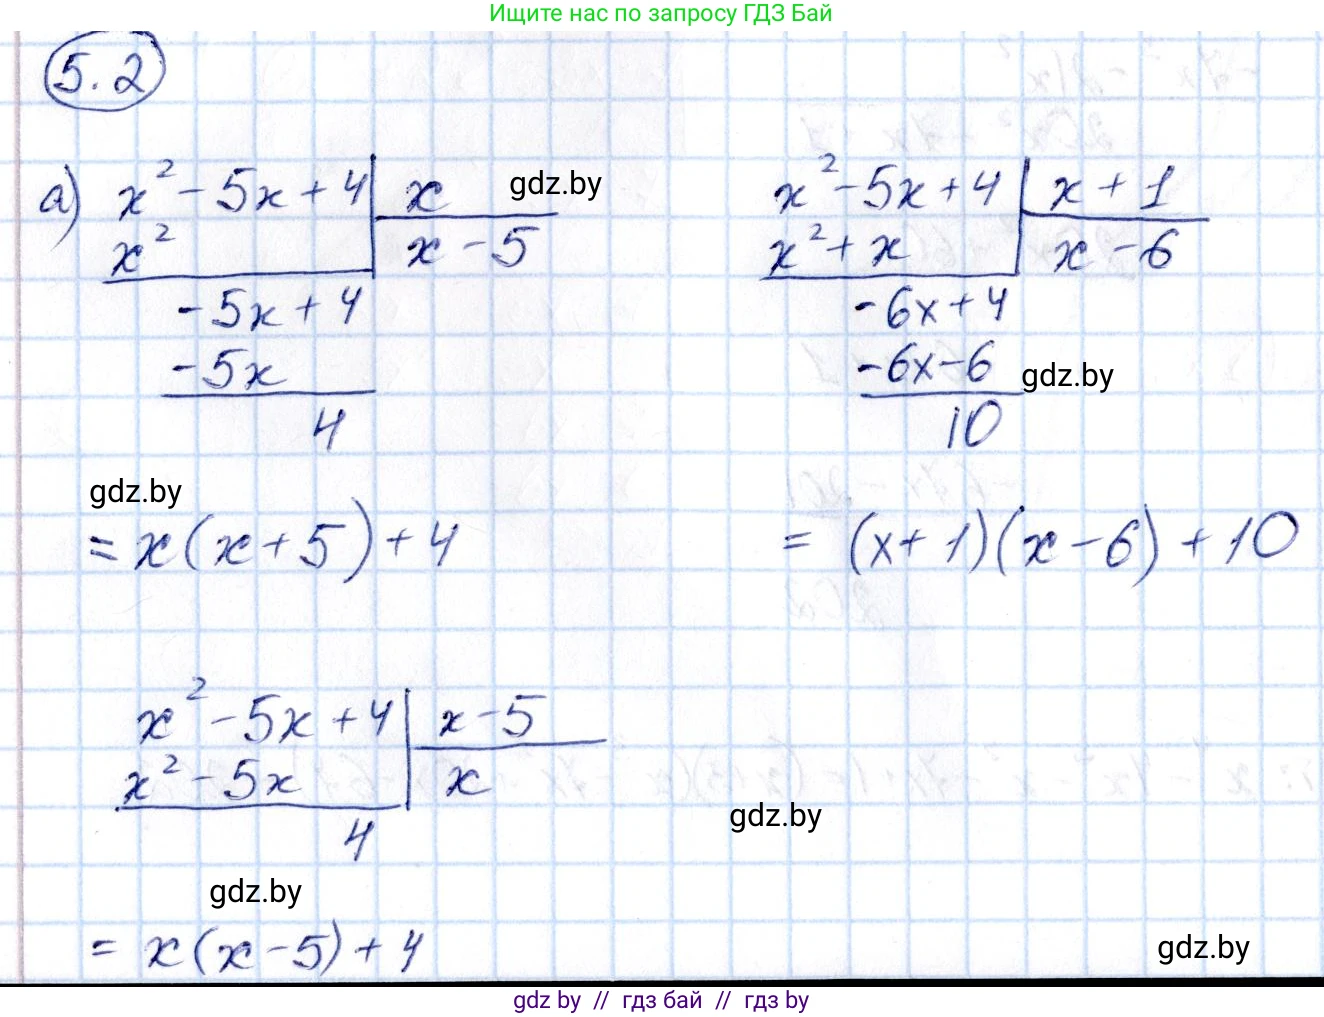 Ищите нас по запросу ГДЗ Бай
5.2
а) x² - 5x + 4 | x
x² | x - 5
-5x + 4
-5x
4
= x(x + 5) + 4
x² - 5x + 4 | x + 1
x² + x | x - 6
-6x + 4
-6x - 6
10
= (x + 1)(x - 6) + 10
x² - 5x + 4 | x - 5
x² - 5x | x
4
= x(x - 5) + 4
gdz.by
gdz.by
gdz.by
gdz.by
gdz.by
gdz.by
gdz by // гдз бай // гдз by